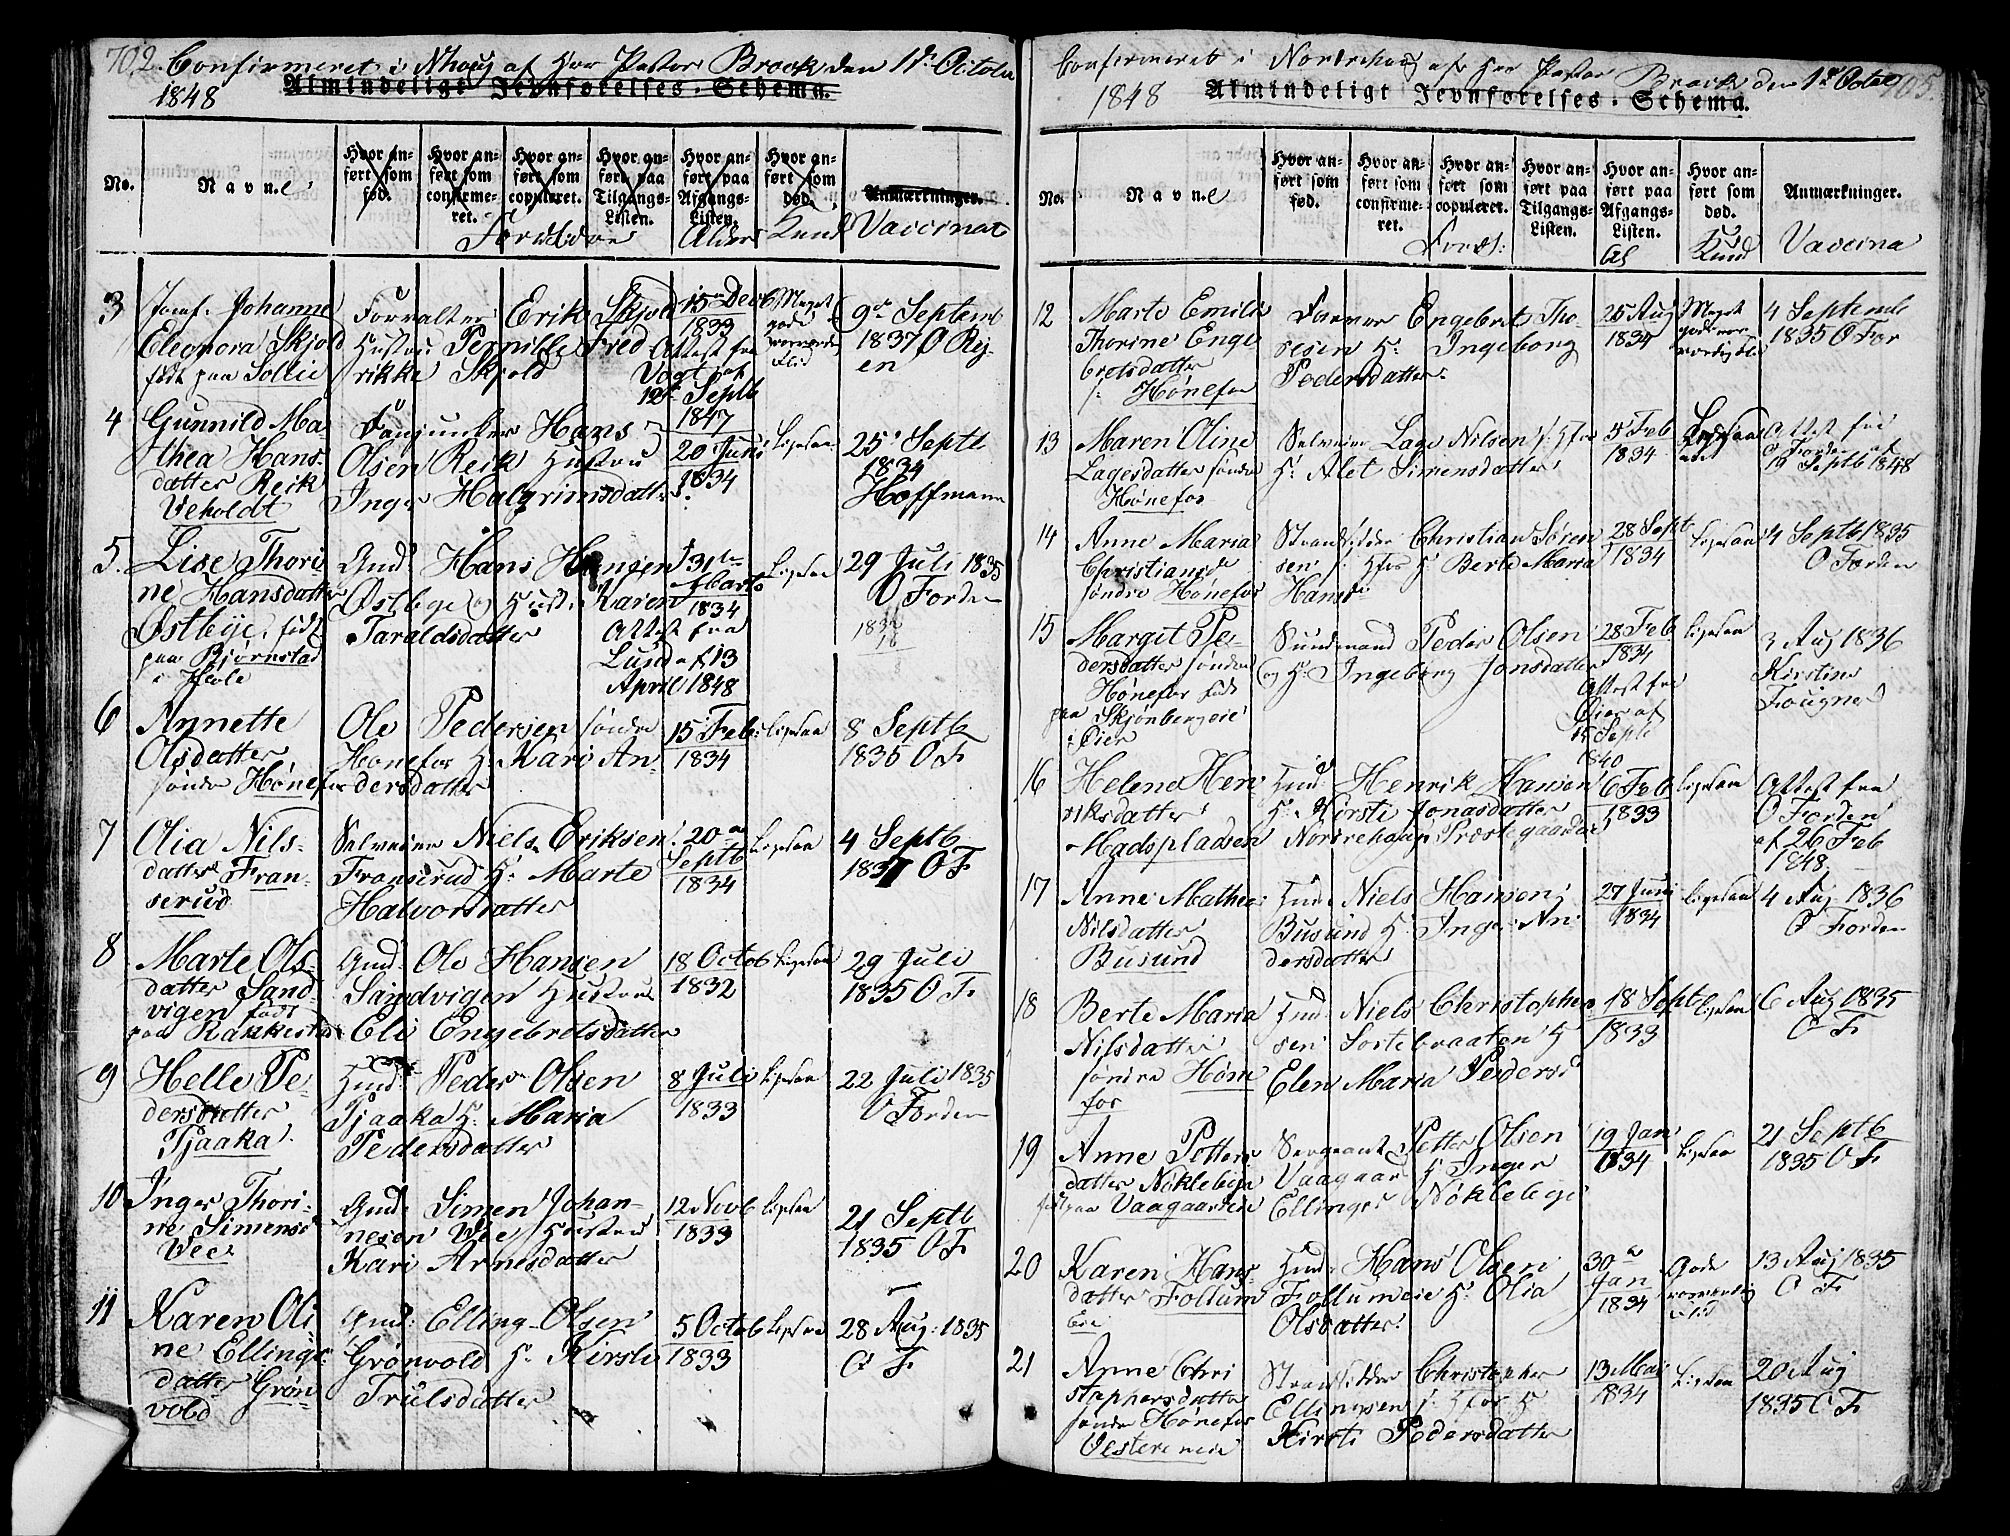 702. Confirmeret i Nhoug af Her Pastor Brock den 1ste October
1848
Almindeligt Jevnførelses-Schema.
No.
Navne
Hvor anført som fød.
Hvor anført som confirmeret.
Hvor anført som copuleret.
Hvor anført paa Tilgangs-Listen.
Hvor anført paa Afgangs-Listen.
Hvor anført som død.
Anmærkninger.
Forældre
Alder
Kund
Vaccinat
3
Jomf. Johanne
Eleonora Skjold
født paa Sollie
Forvalter Erik Skjold
Hustru Pernille Fred
rikke Skjold
15 Decb
1833
Attest fra
Vogt af
12 Septb
1847
Meget
gode
Flid
9de Septemb
1837 O Rej-
en
4
Gunnild Ma-
thea Hans-
datter Reik
Veholdt
Fanjunker Hans
Olsen Reik Hustru
Inger Halgrimsdatter
20 Juni
1834
Ligesaa
25 Septb
1834
Hoffmann
5.
Lise Thori-
ne Hansdatter
Østbye, født
paa Bjørnstad
i Hole
Gmd. Hans Hansen
Østbye og Hust. Karen
Taraldsdatter
31te
Marts
1834
Attest fra
Lund af 13
April 1848
Ligesaa
29 Juli 1835
O Forden
6
Annette
Olsdatter
søndre Hønefos
Ole Pedersen søndre
Honefos H. Kari An-
dersdatter
15 Feb
1834
Ligesaa
8 Septb
1835 O F
7
Olia Nils-
datter Fran-
serud
Selveier Niels Eriksen
Franserud H. Marte
Halvorsdatter
20
Septb
1834
Ligesaa
4 Septb
1837 O F
8
Marte Ols-
datter Sand-
vigen født
paa Rakkestad
Gmd. Ole Hansen
Sandvigen Hustru
Eli Engebretsdatter
18 Octob
1832
Ligesaa
29 Juli
1835 O F
9
Helle Pe-
dersdatter
Tjaaka
Huud. Peder Olsen
Tjaaka H. Maria
Pedersdatter
8 Juli
1833
Ligesaa
22 Juli 1835
O Forden
10
Inger Thori-
ne Simensd
Vee
Gmd. Simen Johan-
nesen Vee Hustru
Kari Arnesdatter
12 Novb
1833
Ligesaa
21 Septb
1835 O F
11
Karen Oli
ne Ellings-
datter Grøn-
vold
Gmd: Elling Olsen
Grønvold H. Kirsti
Trulsdatter
5 Octob
1833
Ligesaa
28 Aug: 1835
O F
Confirmeret i Norderhoug af Her Pastor Brock den 1ste Octob 703.
1848 Almindeligt Jevnførelses-Schema.
No.
Navne
Hvor anført som fød.
Hvor anført som confirmeret.
Hvor anført som copuleret.
Hvor anført paa Tilgangs-Listen.
Hvor anført paa Afgangs-Listen.
Hvor anført som død.
Anmærkninger.
Forældr:
Al
Kund
Vaccina
12
Marte Emilie
Thorine Enge
bretsdatter
s: Hønefos
Farver Engebret Tho-
resen H. Ingeborg
Pedersdatter
25 Aug
1834
Meget
4 Septemb
1835 O For
13
Maren Oline
Lagesdatter søndre
Hønefos
Selveier Lage Nilsen s: Hfos
H. Alet Simensdatter
5 Feb
1834
Ligesaa
Attest fra
O Forden af
19 Septb 1848
14
Anne Maria
Christiansd
søndre Hønefos
Strandsidder Christian Søren
sen s: Hfos H. Berte Maria
Hansd
28 Septb
1834
Ligesaa
4 Septb 1835
O Forden
15
Margit Pe-
dersdatter søndre
Hønefos født
paa Skjønbergeie
i Øier
Sundmand Peder Olsen
og H. Ingeborg Jonsdatter
28 Feb
1834
Attest fra
Øier af
15 Septb
1840
Ligesaa
3 Aug 1836
Kirstine
Fougner
16
Helene Hen
riksdatter
Madspladsen
Huud. Henrik Hansen
H. Kirsti Jonasdatter
Nordrehoug Præstegaards
6 Feb
1833
Ligesaa
Attest fra
O Forden
af 26 Feb
1848
17
Anne Mathea
Nilsdatter
Busund
Huud. Niels Hansen
Busund H. Inger An
dersdatter
27 Juni
1834
Ligesaa
4 Aug 1836
O Forden
18
Berte Maria
Nilsdatter
søndre Høne
fos
Huud. Niels Christopher
sen Sortebraaten H
Elen Maria Pedersd
18 Septb
1833
Ligesaa
6 Aug 1835
O F
19
Anne Petters
datter Nøklebye
født paa Vaagaarden
Sergeant Petter Olsen
Vaagaar H. Inger
Ellingsd Nøklebye
19 Jan
1834
Ligesaa
21 Septb
1835 O F
20
Karen Hans-
datter Follum
Eie
Huud. Hans Olsen
Follumeie H. Olia
Olsdatter
30te
Jan
1834
Gode
Flid
13 Aug 1835
O F
21
Anne Chri
stophersdatter
søndre Hønefos
Vesterneie
Strandsidder Christopher
Ellingsen s: Hfos H
Kirsti Pedersdatter
13 Mai
1834
Ligesaa
20 Aug
1835 O F